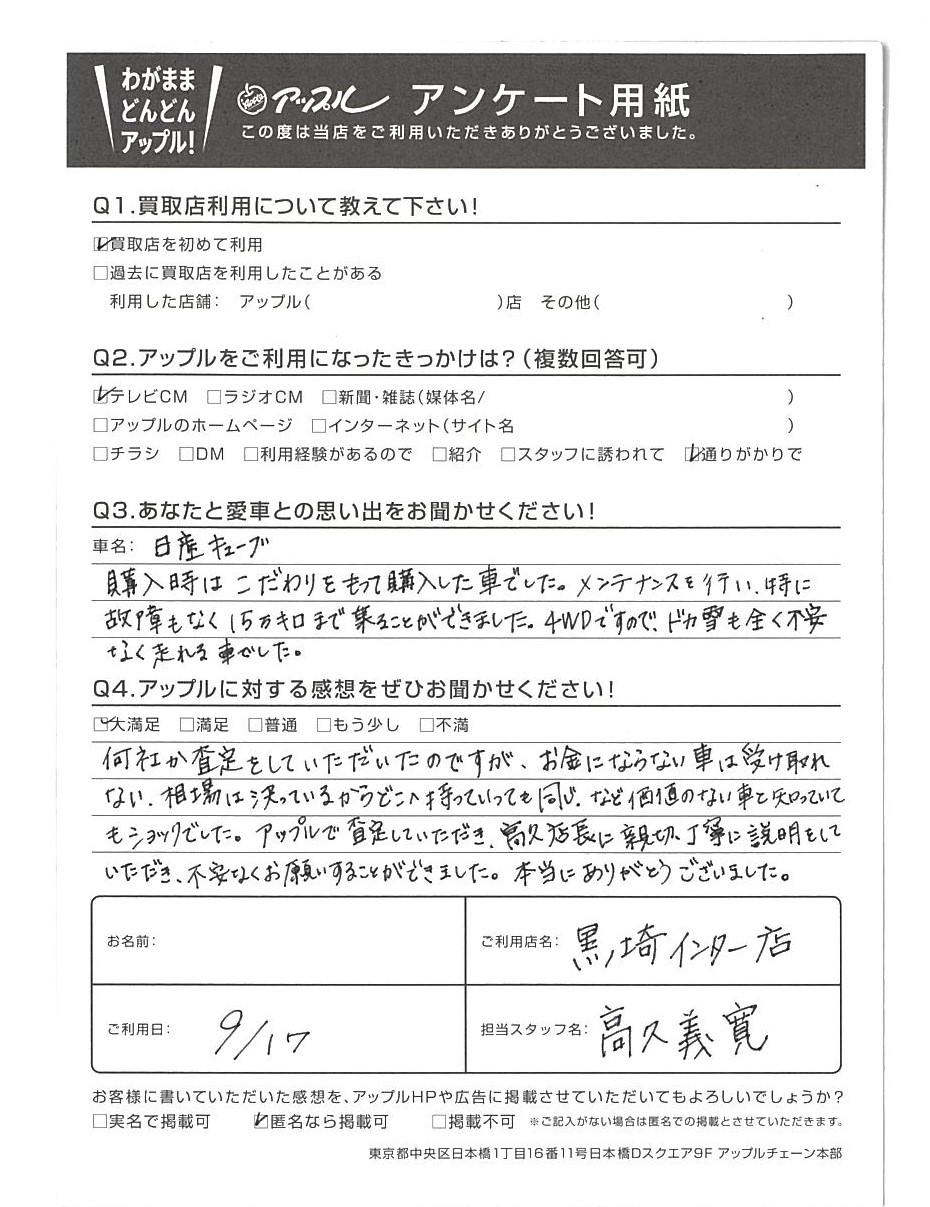 わがまま
どんどん
アップル!
アップル アンケート用紙
この度は当店をご利用いただきありがとうございました。
Q1.買取店利用について教えて下さい!
☑買取店を初めて利用
□過去に買取店を利用したことがある
利用した店舗: アップル( )店 その他( )
Q2.アップルをご利用になったきっかけは?(複数回答可)
☑テレビCM □ラジオCM □新聞・雑誌(媒体名/ )
□アップルのホームページ □インターネット(サイト名 )
□チラシ □DM □利用経験があるので □紹介 □スタッフに誘われて ☑通りがかりで
Q3.あなたと愛車との思い出をお聞かせください!
車名: 日産キューブ
購入時はこだわりをもって購入した車でした。メンテナンスを行い、特に
故障もなく15万キロまで乗ることができました。4WDですので、ドカ雪も全く不安
なく走れる車でした。
Q4.アップルに対する感想をぜひお聞かせください!
☑大満足 □満足 □普通 □もう少し □不満
何社か査定をしていただいたのですが、お金にならない車は受け取れ
ない、相場は決っているからどこへ持っていっても同じ、など価値のない車と知っていて
もショックでした。アップルで査定していただき、高久店長に親切、丁寧に説明をして
いただき、不安なくお願いすることができました。本当にありがとうございました。
お名前:
ご利用店名: 黒埼インター店
ご利用日: 9/17
担当スタッフ名: 高久義寛
お客様に書いていただいた感想を、アップルHPや広告に掲載させていただいてもよろしいでしょうか?
□実名で掲載可 ☑匿名なら掲載可 □掲載不可 ※ご記入がない場合は匿名での掲載とさせていただきます。
東京都中央区日本橋1丁目16番11号日本橋Dスクエア9F アップルチェーン本部